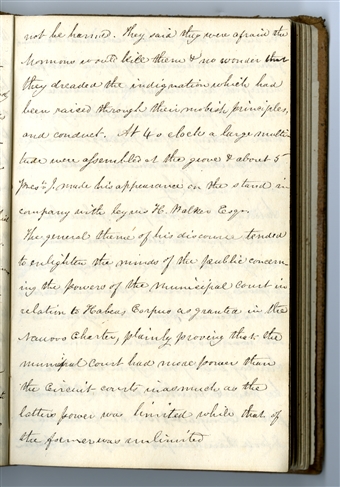 not be harmed. They said they were afraid the
Mormons would kill them & no wonder that
they dreaded the indignation which had
been raised through their mobish principles,
and conduct. At 4 o clock a large multi
tude were assembled at the grove & about 5
Pres.t J. made his appearance on the stand in
company with Cyrus H. Walker Esqr.
The general theme of his discourse tended
to enlighten the minds of the public concern
ing the powers of the municipal court in
relation to Habeas Corpus as granted in the
Nauvoo Charter, plainly proving that the
municipal Court had more power than
the Circuit courts inasmuch as the
latters power was limited while that of
the former was unlimited